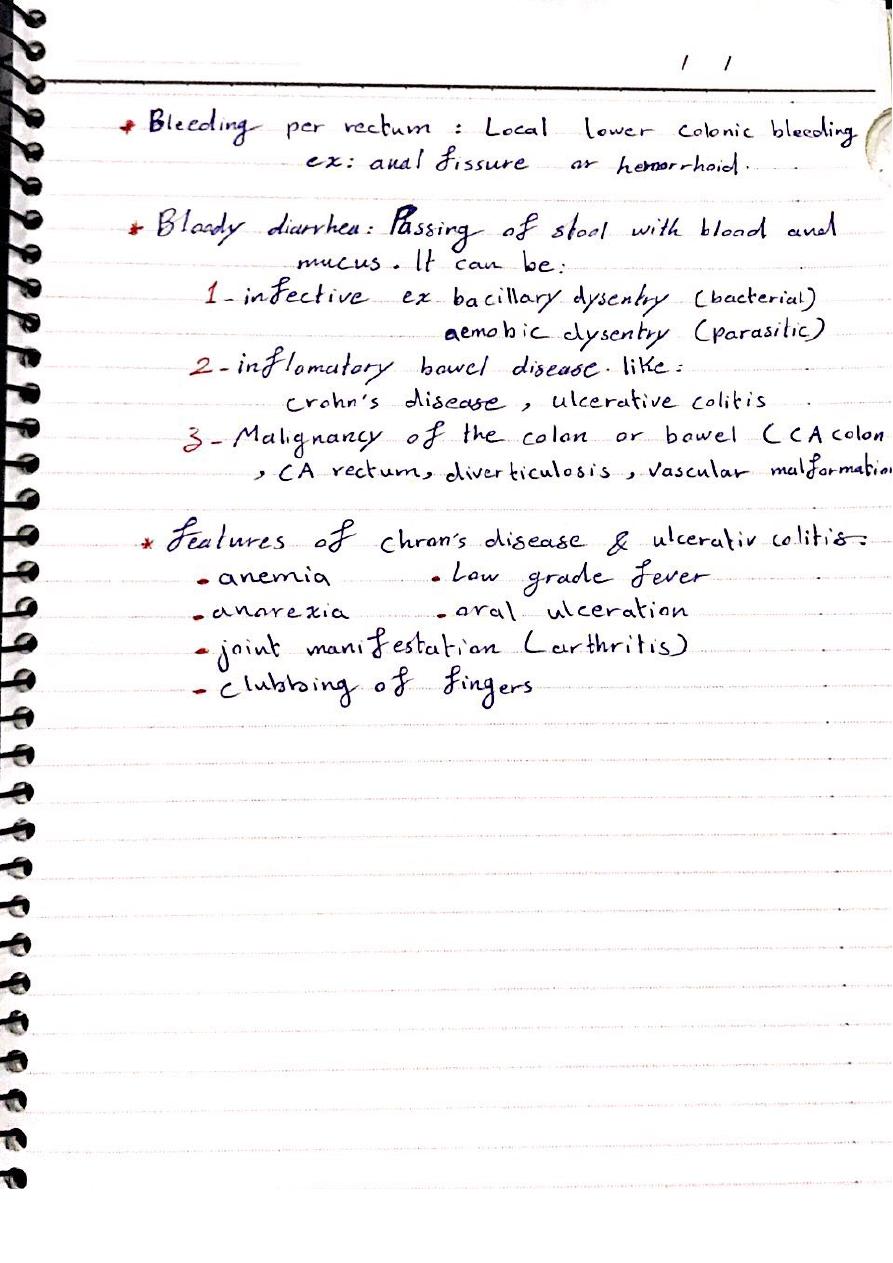 / /
* Bleeding per rectum : Local lower colonic bleeding
ex: anal fissure or hemorrhoid.
* Bloody diarrhea: Passing of stool with blood and
mucus. It can be:
1- infective ex bacillary dysentry (bacterial)
aemobic dysentry (parasitic)
2- inflomatory bowel disease. like:
crohn's disease, ulcerative colitis
3- Malignancy of the colon or bowel (CA colon
, CA rectum, diverticulosis, vascular malformation
* features of chron's disease & ulcerativ colitis:
- anemia - Low grade fever
- anorexia - oral ulceration
- joint manifestation (arthritis)
- clubbing of fingers